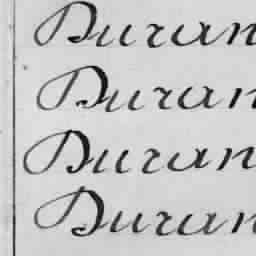 Duran
Duran
Duran
Duran